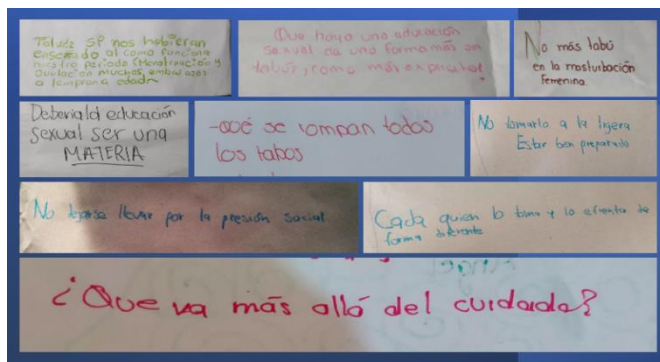 Talvéz SP nos hubieran
enseñado al como funciona
nuestro periodo (Menstruación y
Ovulación muchos embarazos
a temprana edad
Que haya una educación
sexual de una forma más sin
tabús, como más explicita!
No más tabú
en la masturbación
femenina.
Debería la educación
sexual ser una
MATERIA
-Qué se rompan todos
los tabas
No tomarlo a la ligera
Estar bien preparado
No dejarse llevar por la presión social
Cada quien lo toma y lo afronta de
forma diferente
¿Que va más allá del cuidado?